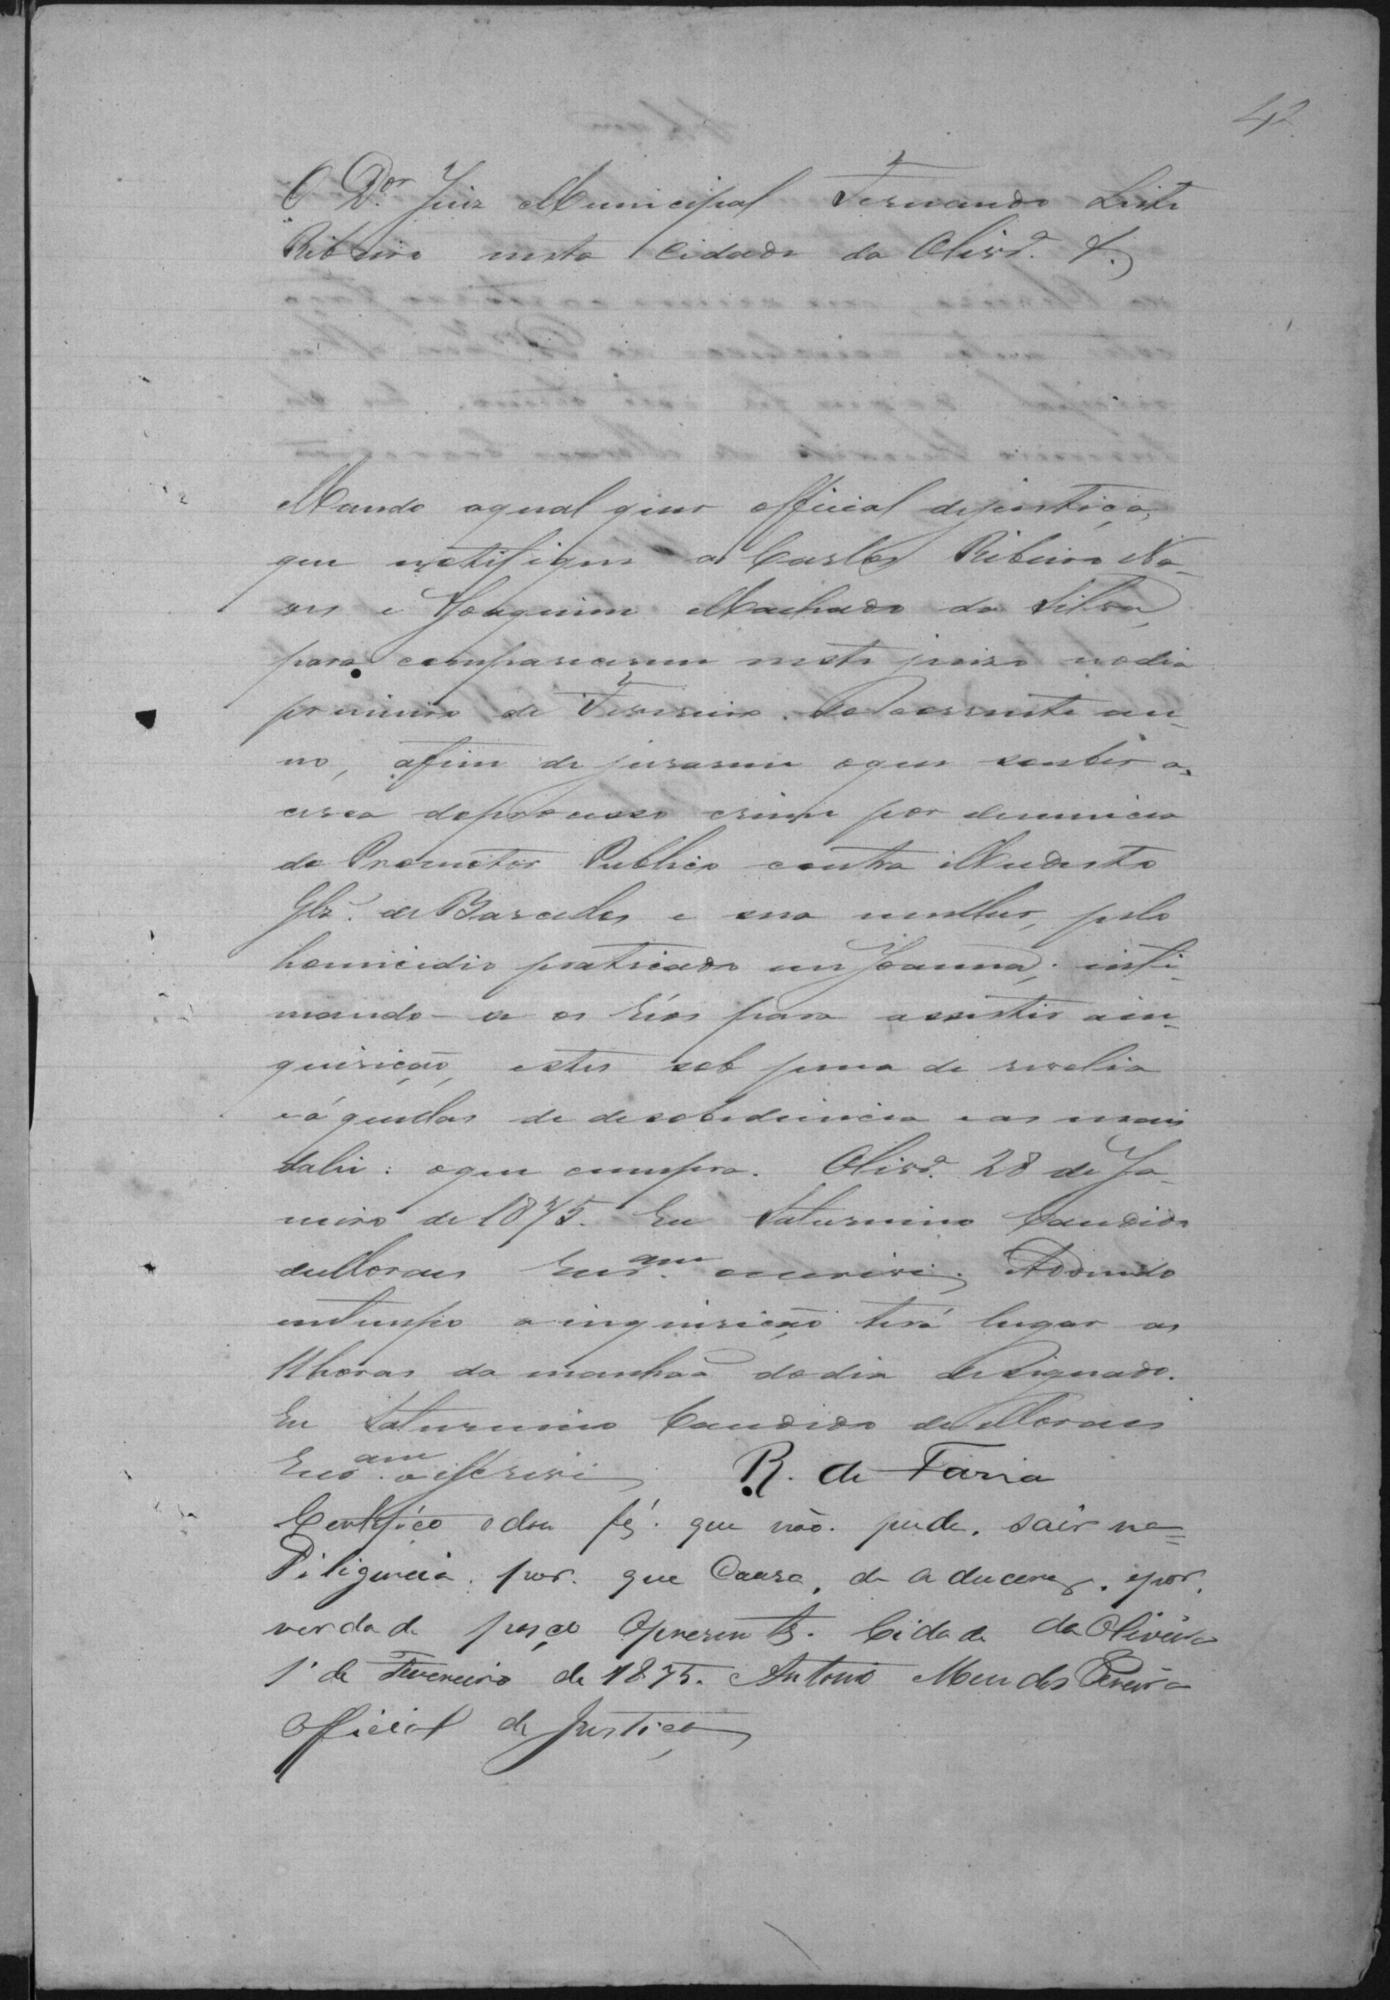 42
O Dor. Juiz Municipal Fernando Leite
Ribeiro nesta Cidade da Olivra. &.
Mando aqual quer official dejustiça,
que notifique a Carlos Ribeiro No-
 e Joaquim Machado da Silva,
para comparecerem neste juizo nodia
primeiro de Fevereiro. docorrente an-
no, afim de jurarem oque souber a-
cerca doprocesso crime por denuncia
do Promotor Publico contra Mudesto
Glz. de Barcellos e sua mulher, pelo
homicidio praticado em Joanna; inti-
mando-se os Réos para assistir ain-
quirição, estes sob pena de revelia
e áquellas de desobediencia eas mais
dalei: oque cumpra. Olivra. 28 de Ja-
neiro de 1875. Eu Saturnino Candido
deMoraes Escram. escrevi;
emtempo a inquirição terá lugar as
11horas da manhaã dodia designado.
Eu Saturnino Candido deMoraes
Escram. o escrevi R. de Faria
Certifico edou fé. que não. pude. sair na=
Diligencia. por. que Causa. de a ducerse. epor.
verdade paço apresente. Cidade da Oliveira
1º de Fevereiro de 1875. Antonio Mendes Pereira
Official de Justiça